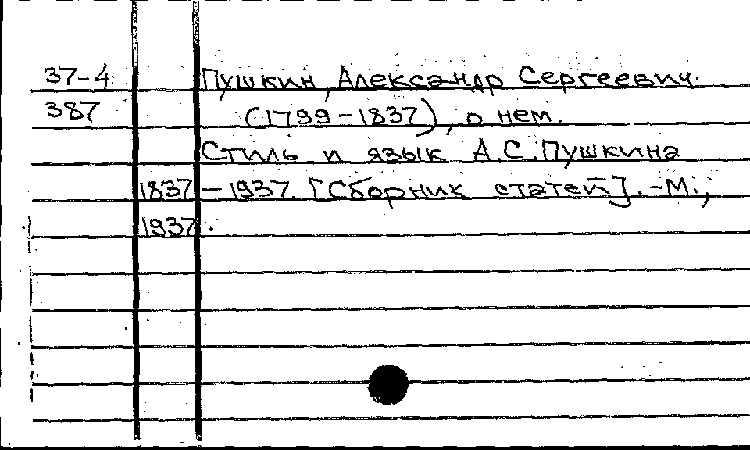 37-4 Пушкин, Александр Сергеевич
387 (1799-1837), о нем.
Стиль и язык А.С. Пушкина
1837-1937. [Сборник статей]. -М.,
1937.